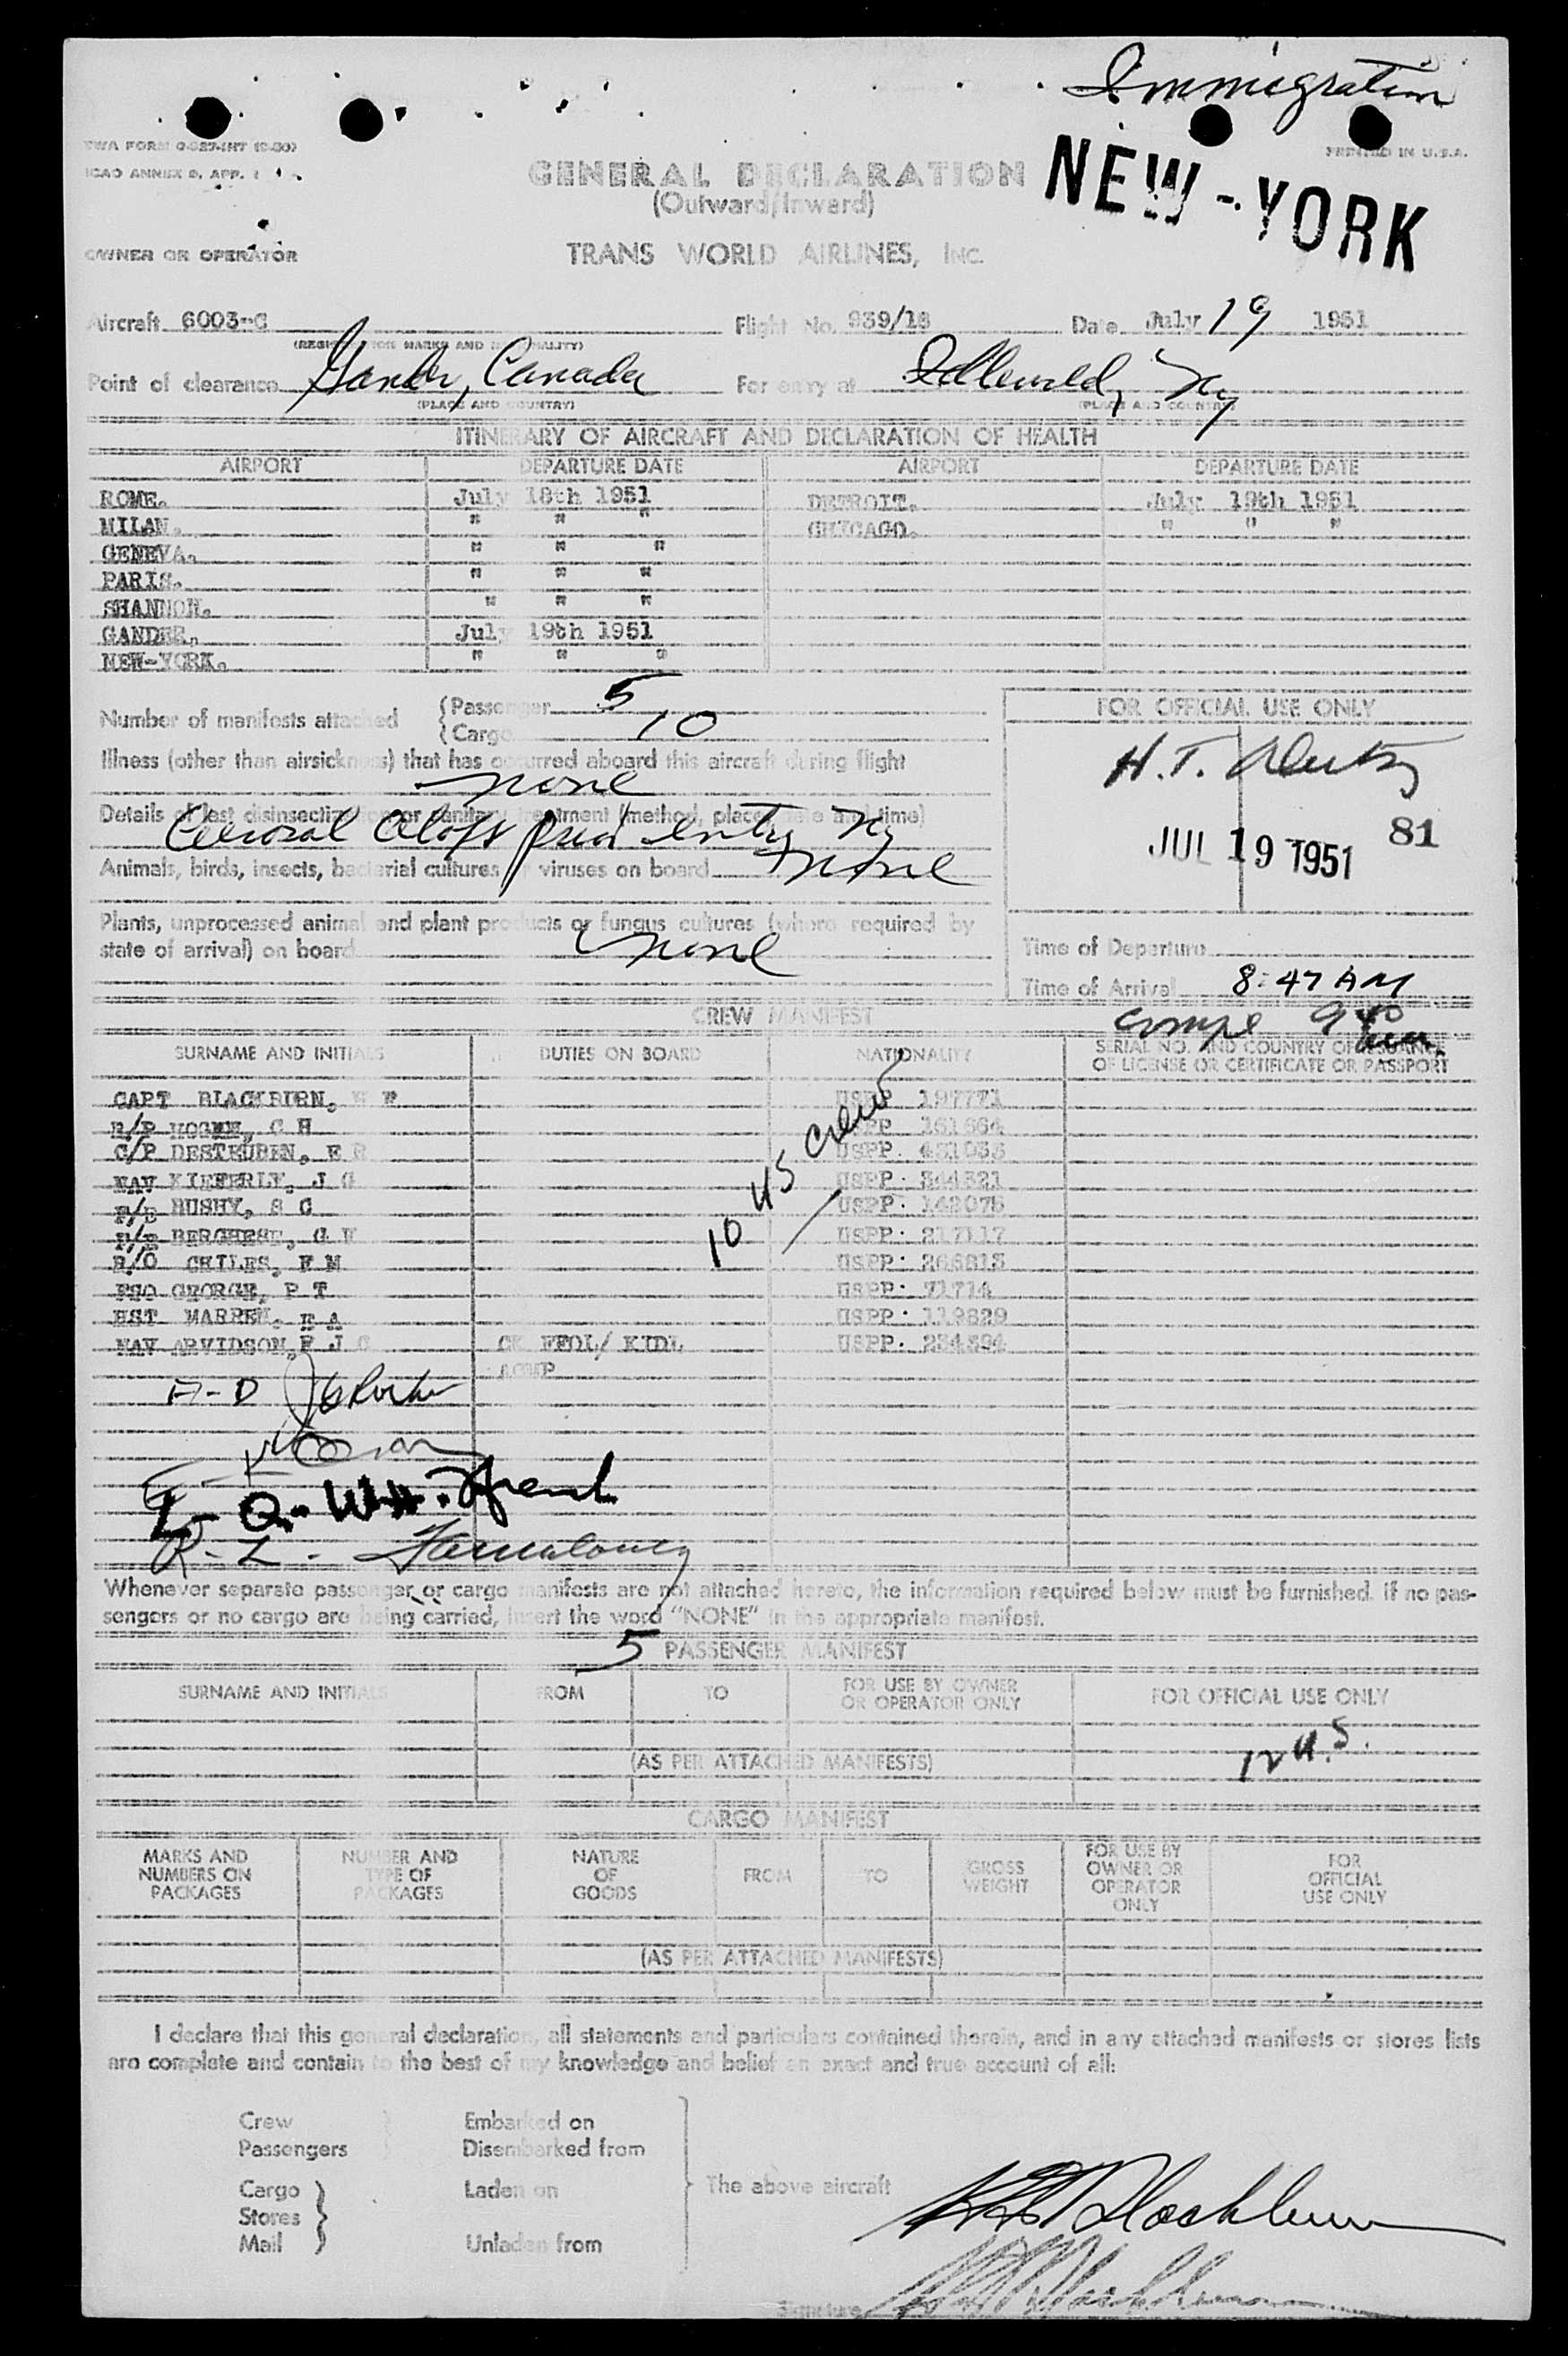 Immigration
TWA FORM
ICAO ANNEX 9, APP. 1
PRINTED IN U.S.A.
GENERAL DECLARATION
(Outward/Inward)
NEW-YORK
OWNER OR OPERATOR
TRANS WORLD AIRLINES, INC.
Aircraft 6003-C Flight No. 939/18 Date July 19 1951
(REGISTRATION MARKS AND NATIONALITY)
Point of clearance Gander, Canada For entry at Idlewild, Ny
(PLACE AND COUNTRY) (PLACE AND COUNTRY)
ITINERARY OF AIRCRAFT AND DECLARATION OF HEALTH
AIRPORT DEPARTURE DATE AIRPORT DEPARTURE DATE
ROME. July 18th 1951 DETROIT. July 19th 1951
MILAN. " " " CHICAGO. " " "
GENEVA. " " "
PARIS. " " "
SHANNON. " " "
GANDER. July 19th 1951
NEW-YORK. " " "
Number of manifests attached
Passenger 5
Cargo 10
FOR OFFICIAL USE ONLY
Illness (other than airsickness) that has occurred aboard this aircraft during flight
none
H. T.
Details of last disinsectization or sanitary treatment (method, place, date and time)
Aerosol Aloft prior entry Ny
JUL 19 1951 81
Animals, birds, insects, bacterial cultures or viruses on board none
Plants, unprocessed animal and plant products or fungus cultures (where required by
state of arrival) on board none
Time of Departure
Time of Arrival 8:47 AM
CREW MANIFEST
SURNAME AND INITIALS DUTIES ON BOARD NATIONALITY SERIAL NO. AND COUNTRY OF ISSUANCE
OF LICENSE OR CERTIFICATE OR PASSPORT
CAPT BLACKBURN, USPP 197771
HOGEN, C H USPP
C/P DESTEUBEN, E R USPP
NAV KIEFERLY, J G USPP
F/E BUSHY, S G USPP
F/E BERGHESE, G USPP 217117
R/O CHILES, F M USPP
GEORGE, P T USPP 71714
HST WARREN, E A USPP 119829
NAV ARVIDSON, F J C USPP
10 US Crew
Whenever separate passenger or cargo manifests are not attached hereto, the information required below must be furnished. If no pas-
sengers or no cargo are being carried, insert the word "NONE" in the appropriate manifest.
5 PASSENGER MANIFEST
SURNAME AND INITIALS FROM TO FOR USE BY OWNER
OR OPERATOR ONLY FOR OFFICIAL USE ONLY
12 U.S.
(AS PER ATTACHED MANIFESTS)
CARGO MANIFEST
MARKS AND
NUMBERS ON
PACKAGES
NUMBER AND
TYPE OF
PACKAGES
NATURE
OF
GOODS
FROM
TO
GROSS
WEIGHT
FOR USE BY
OWNER OR
OPERATOR
ONLY
FOR
OFFICIAL
USE ONLY
(AS PER ATTACHED MANIFESTS)
I declare that this general declaration, all statements and particulars contained therein, and in any attached manifests or stores lists
are complete and contain to the best of my knowledge and belief an exact and true account of all:
Crew Embarked on
Passengers Disembarked from
Cargo Laden on The above aircraft
Stores
Mail Unladen from
Blackburn
Signature Blackburn